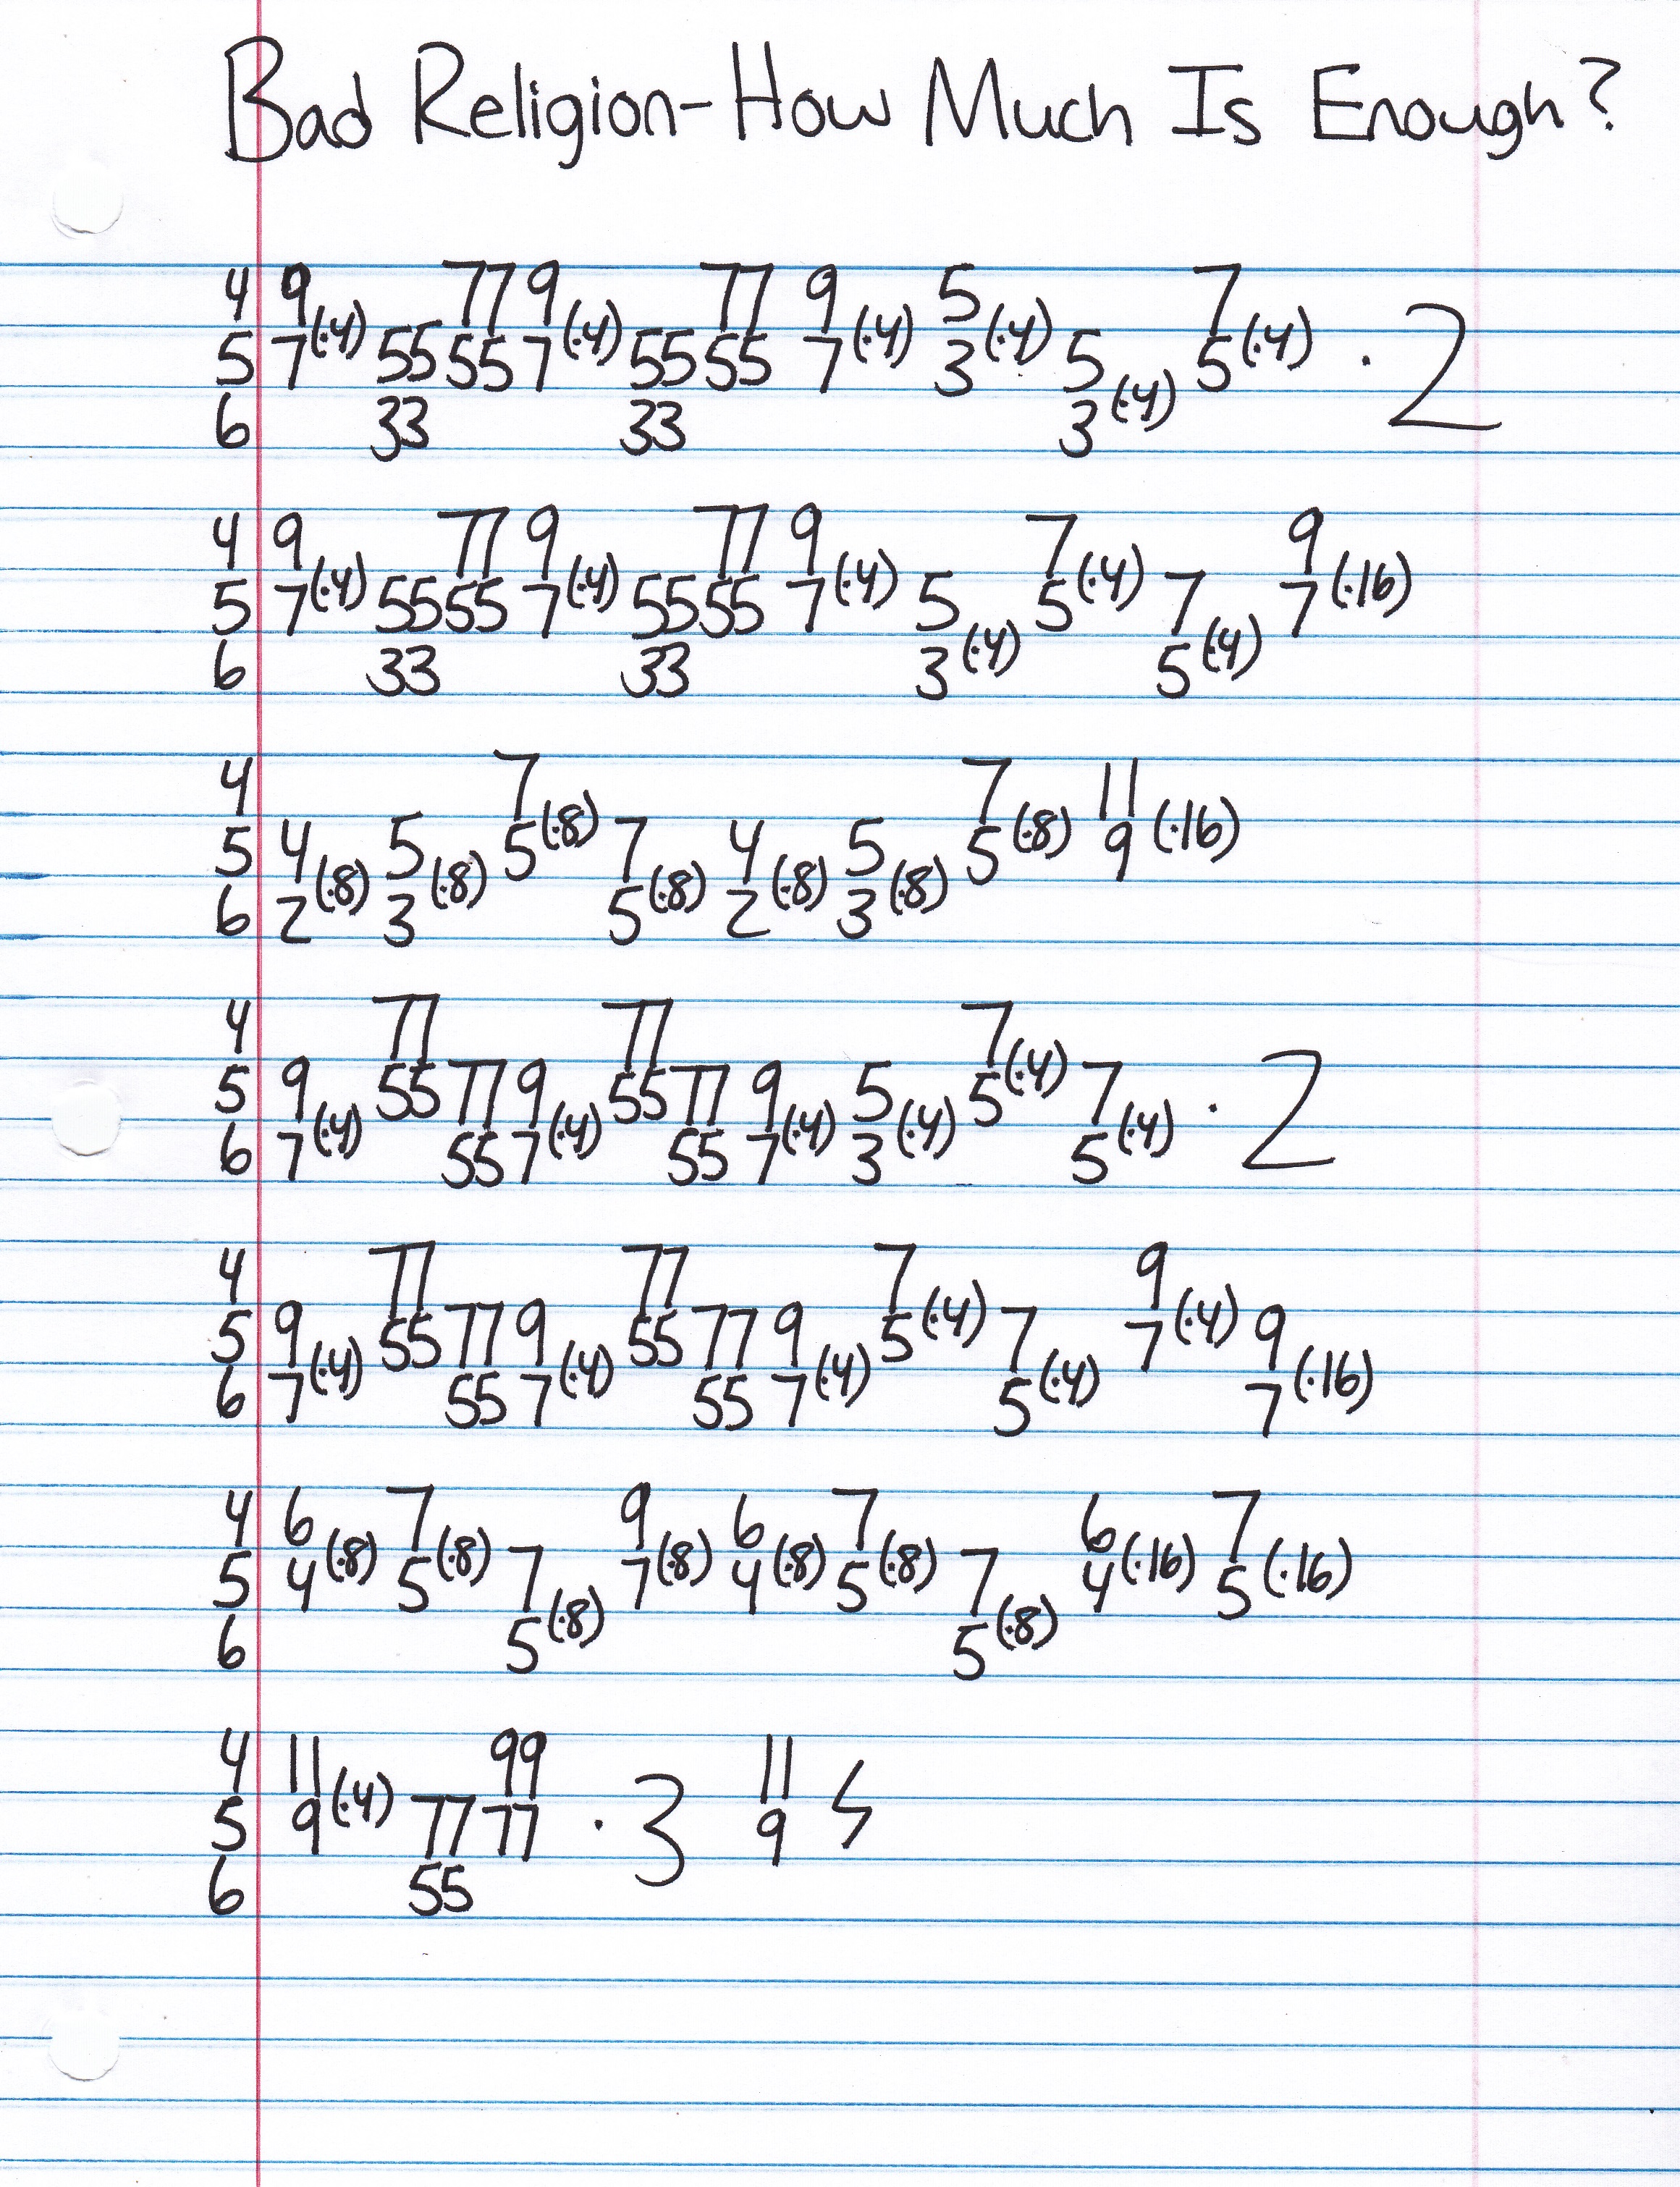 Bad Religion-How Much Is Enough?
4 9 77 9 77 9 5 7
5 7(·4) 55 55 7(·4) 55 55 7(·4) 3(·4) 5 5(·4) · 2
6 33 33 3(·4)
4 9 77 9 77 9 7 9
5 7(·4) 55 55 7(·4) 55 55 7(·4) 5 5(·4) 7 7(·16)
6 33 33 3(·4) 5(·4)
4 7 7 11
5 4 5 5(·8) 7 4 5 5(·8) 9(·16)
6 2(·8) 3(·8) 5(·8) 2(·8) 3(·8)
4 77 77 7
5 9 55 77 9 55 77 9 5 5(·4) 7 · 2
6 7(·4) 55 7(·4) 55 7(·4) 3(·4) 5(·4)
4 77 77 7 9
5 9 55 77 9 55 77 9 5(·4) 7 7(·4) 9
6 7(·4) 55 7(·4) 55 7(·4) 5(·4) 7(·16)
4 6 7 9 6 7 6 7
5 4(·8) 5(·8) 7 7(·8) 4(·8) 5(·8) 7 4(·16) 5(·16)
6 5(·8) 5(·8)
4 11 99 11
5 9(·4) 77 77 · 3 9
6 55